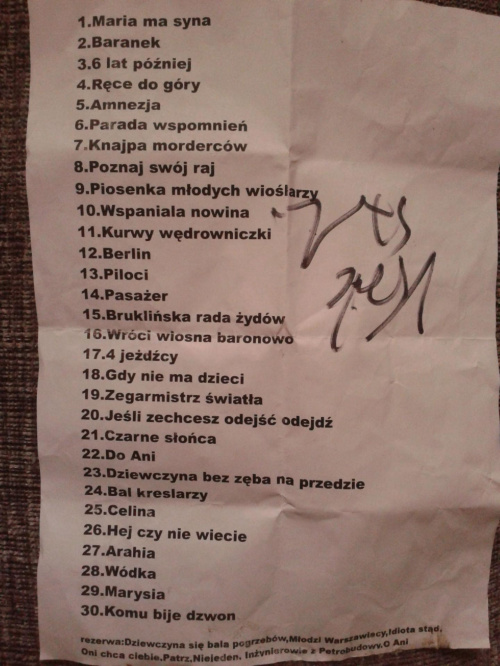 1.Maria ma syna
2.Baranek
3.6 lat później
4.Ręce do góry
5.Amnezja
6.Parada wspomnień
7.Knajpa morderców
8.Poznaj swój raj
9.Piosenka młodych wioślarzy
10.Wspaniala nowina
11.Kurwy wędrowniczki
12.Berlin
13.Piloci
14.Pasażer
15.Bruklińska rada żydów
16.Wróci wiosna baronowo
17.4 jeźdźcy
18.Gdy nie ma dzieci
19.Zegarmistrz światła
20.Jeśli zechcesz odejść odejdź
21.Czarne słońca
22.Do Ani
23.Dziewczyna bez zęba na przedzie
24.Bal kreslarzy
25.Celina
26.Hej czy nie wiecie
27.Arahia
28.Wódka
29.Marysia
30.Komu bije dzwon
rezerwa:Dziewczyna się bala pogrzebów,Młodzi Warszawiacy,Idiota stąd,
Oni chca ciebie,Patrz,Niejeden, Inżynierowie z Petrobudowy,O Ani